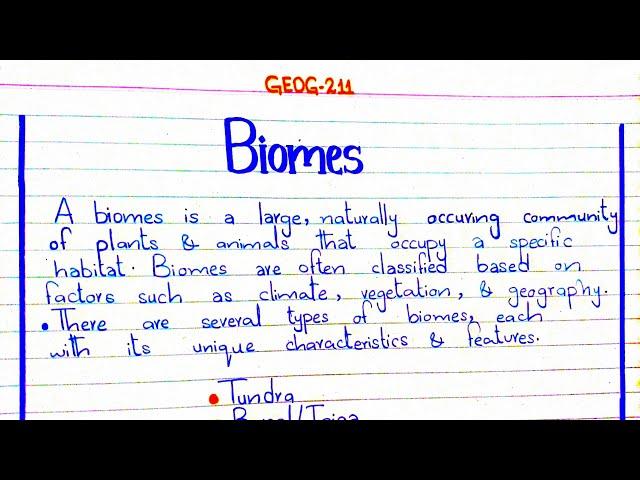 GEOG-211
Biomes
A biomes is a large, naturally occuring community
of plants & animals that occupy a specific
habitat. Biomes are often classified based on
factors such as climate, vegetation, & geography.
• There are several types of biomes, each
with its unique characteristics & features.
• Tundra